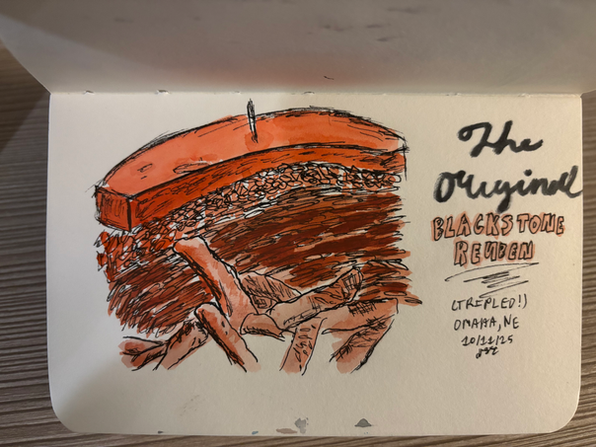 The
Original
BLACKSTONE
REUBEN
(TREPLED!)
OMAHA, NE
10/11/25